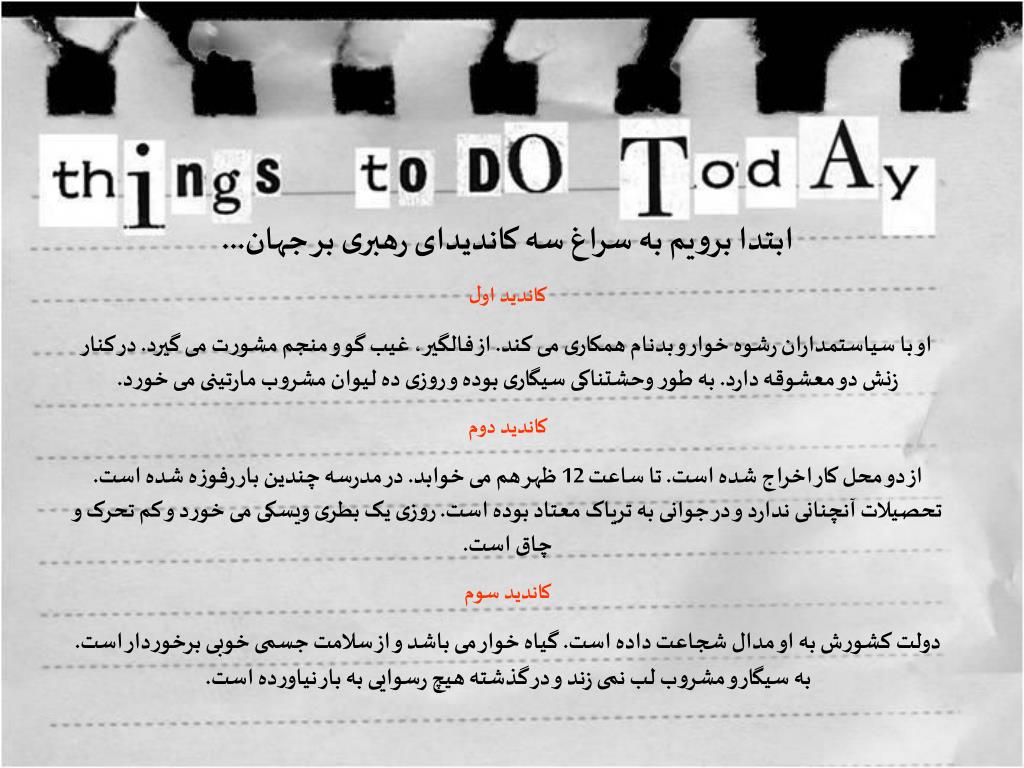 things to DO TodAy
ابتدا برویم به سراغ سه کاندیدای رهبری بر جهان...
کاندید اول
او با سیاستمداران رشوه خوار و بدنام همکاری می کند. از فالگیر، غیب گو و منجم مشورت می گیرد. در کنار
زنش دو معشوقه دارد. به طور وحشتناکی سیگاری بوده و روزی ده لیوان مشروب مارتینی می خورد.
کاندید دوم
از دو محل کار اخراج شده است. تا ساعت 12 ظهر هم می خوابد. در مدرسه چندین بار رفوزه شده است.
تحصیلات آنچنانی ندارد و در جوانی به تریاک معتاد بوده است. روزی یک بطری ویسکی می خورد و کم تحرک و
چاق است.
کاندید سوم
دولت کشورش به او مدال شجاعت داده است. گیاه خوار می باشد و از سلامت جسمی خوبی برخوردار است.
به سیگار و مشروب لب نمی زند و در گذشته هیچ رسوایی به بار نیاورده است.